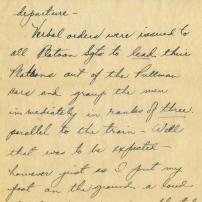 departure –
Verbal orders were issued to
all Platoon Sgts to lead their
Platoons out of the Pullman
cars and group the men
immediately in ranks of three
parallel to the train – Well
that was to be expected –
however just as I put my
foot on the ground a loud